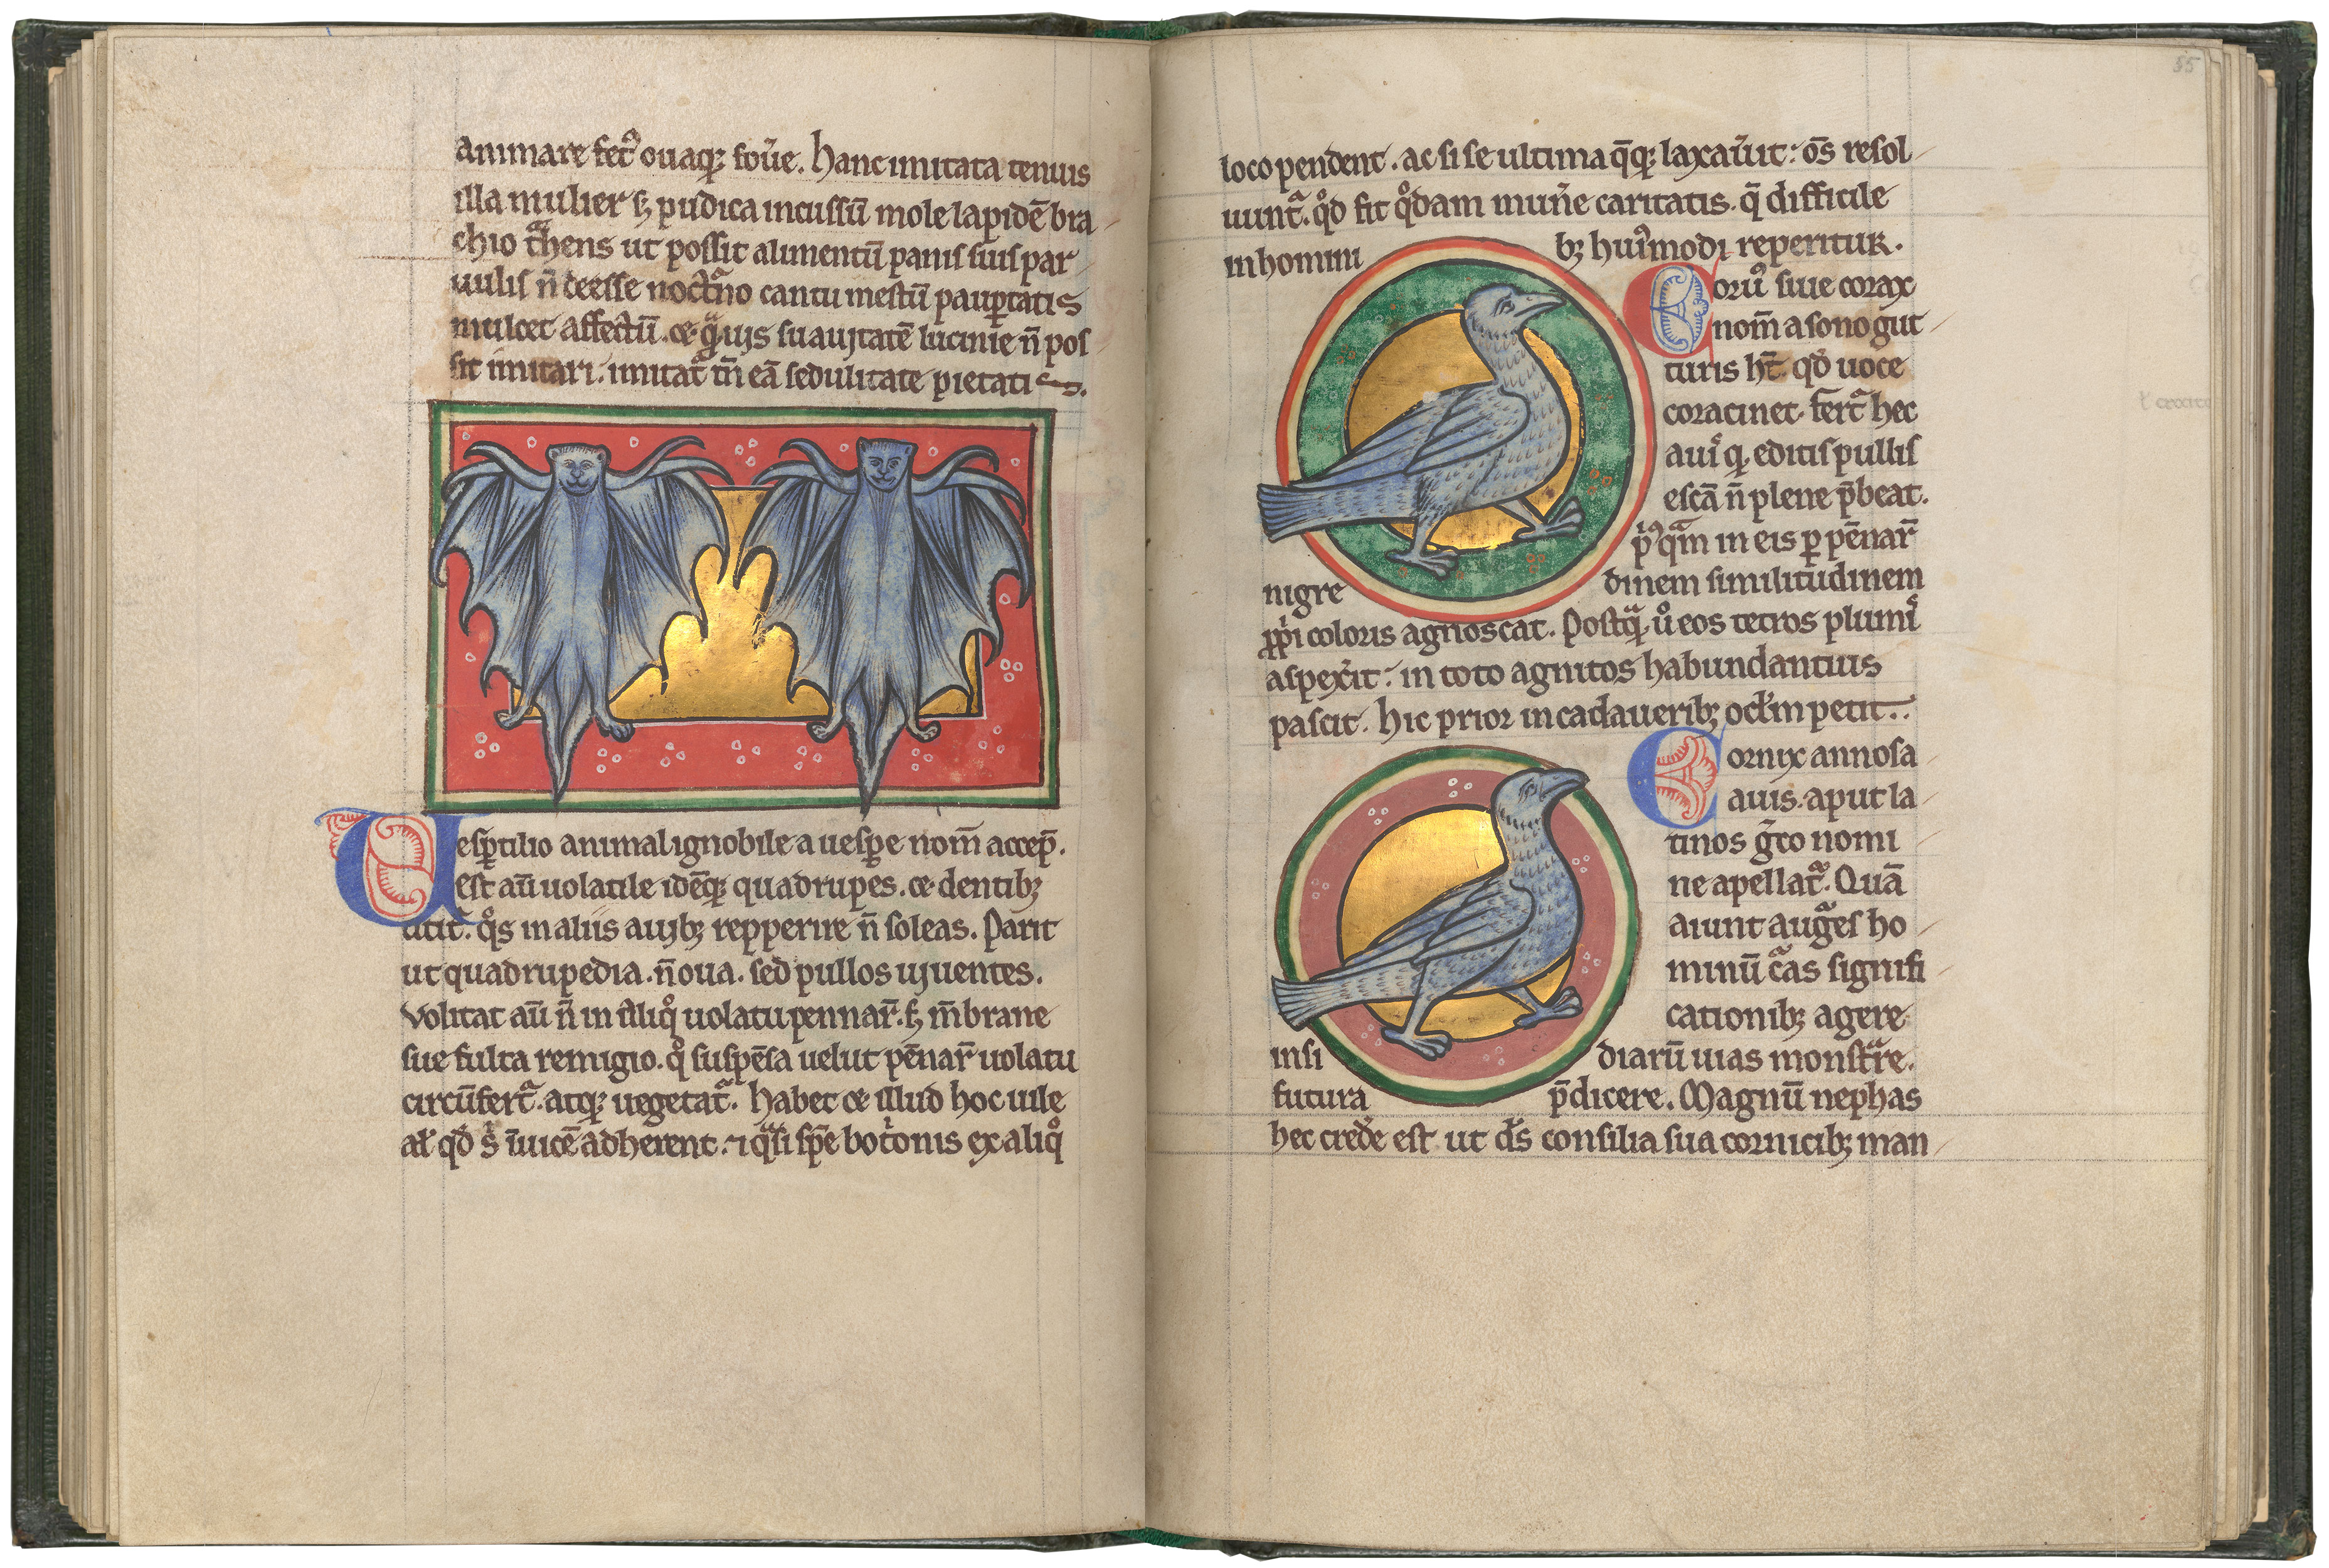 animare fet᷑ ouaqꝫ fou̓e. hanc imitata tenuis
illa mulier sꝫ pudica incussū mole lapidē bra
chio t᷑hens ut possit alimentū panis suis par
uulis n̄ deesse noct᷑no cantu mestū paup̱tatis
mulcet affectū. ⁊ qͣuis suauitatē lucinie n̄ pos
sit imitari. imitat᷑ tn̄ eā sedulitate pietatis.
Vesp̱tilio animal ignobile a uesp̱e nom̄ accep̱.
est aū uolatile idēqꝫ quadrupes. ⁊ dentibꝫ
utit᷑. qͦs in aliis auibꝫ repperire n̄ soleas. Parit
ut quadrupedia. n̄ oua. sed pullos uiuentes.
Volitat aū n̄ in aliqͦ uolatu pennar̄. sꝫ m̄brane
sue fulta remigio. qͦ suspēsa uelut pēnar̄ uolatu
circūfert᷑. atqꝫ uegetat᷑. habet ⁊ illud hoc uile
al̓ qd̓ s̓ īuicē adherent. ⁊ qͣsi sp̄e bot᷑onis ex aliqͦ
55
loco pendent. ac si se ultima q̄qꝫ laxau̓it: om̄s resol
uunt᷑. qͦd fit qͦdam mun̓e caritatis. q̄ difficile
in homini bꝫ huiͥmodi reperitur.
Coruͦ siue corax
nom̄ a sono gut
turis ht̄. qd̓ uoce
coracinet. fert᷑ hec
auiͥs qͥ editis pullis
escā n̄ plene p̄beat.
pͥꝰqͣm in eis p̱ pēnar̄
nigre dinem similitudinem
ꝓpͥi coloris agnoscat. Postqͣ u̓ eos tetros plumiͥs
aspex̓it: in toto agnitos habundantius
pascit. hic prior in cadaueribꝫ ocl̓m petit..
Cornix annosa
auis. aput la
tinos g̓co nomi
ne apellat᷑. Quā
aiunt aug᷑es ho
minū c᷑as signifi
cationibꝫ agere.
insi diarū uias monst᷑re.
futura p̄dicere. Magnū nephas
hec cred̓e est ut d̄s consilia sua cornicibꝫ man